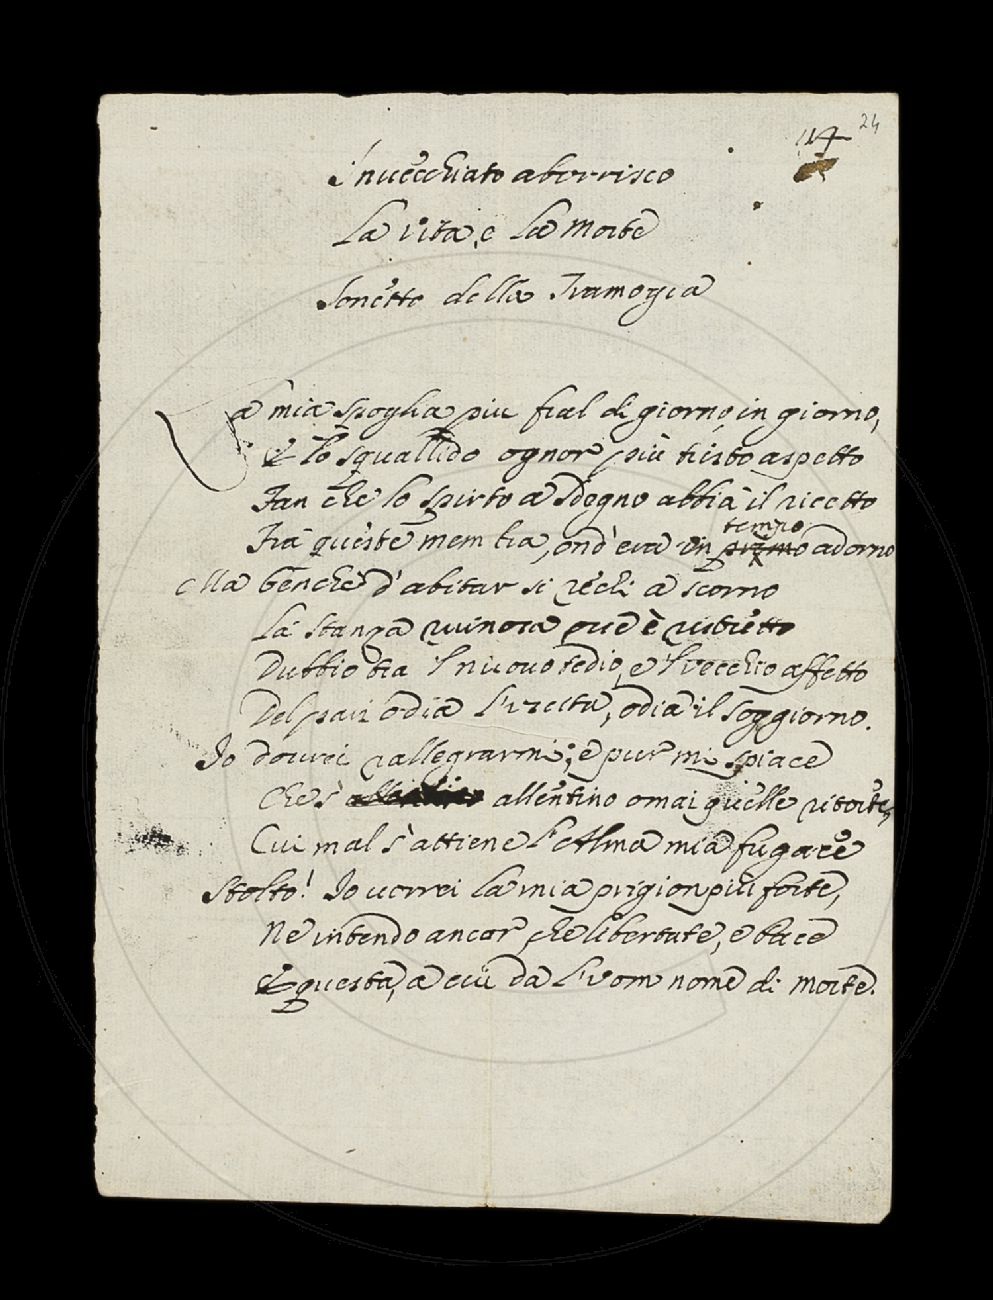 24
14
Invecchiato aborrisco
La vita, e La Morte
Sonetto della Tramogia
La mia spoglia piu fral di giorno in giorno,
E lo squallido ognor più tristo aspetto
Fan che lo spirto a sdegno abbia il ricetto
tempo
Frà queste membra, ond'era un primo adorno
Ma benche d'abitar si rechi a scorno
La stanza ruinosa ov'è ristretto
Dubbio tra 'l nuovo tedio, e 'l vecchio affetto
Del pari odia l'uscita, odia il soggiorno.
Io dovrei rallegrarmi; e pur mi spiace
Che s' allentino omai quelle ritorte,
Cui mal s'attiene l'Alma mia fugace
Stolto! Io vorrei la mia prigion più forte,
Ne intendo ancor che libertate, e pace
E questa, a cui dà l'uom nome di morte.